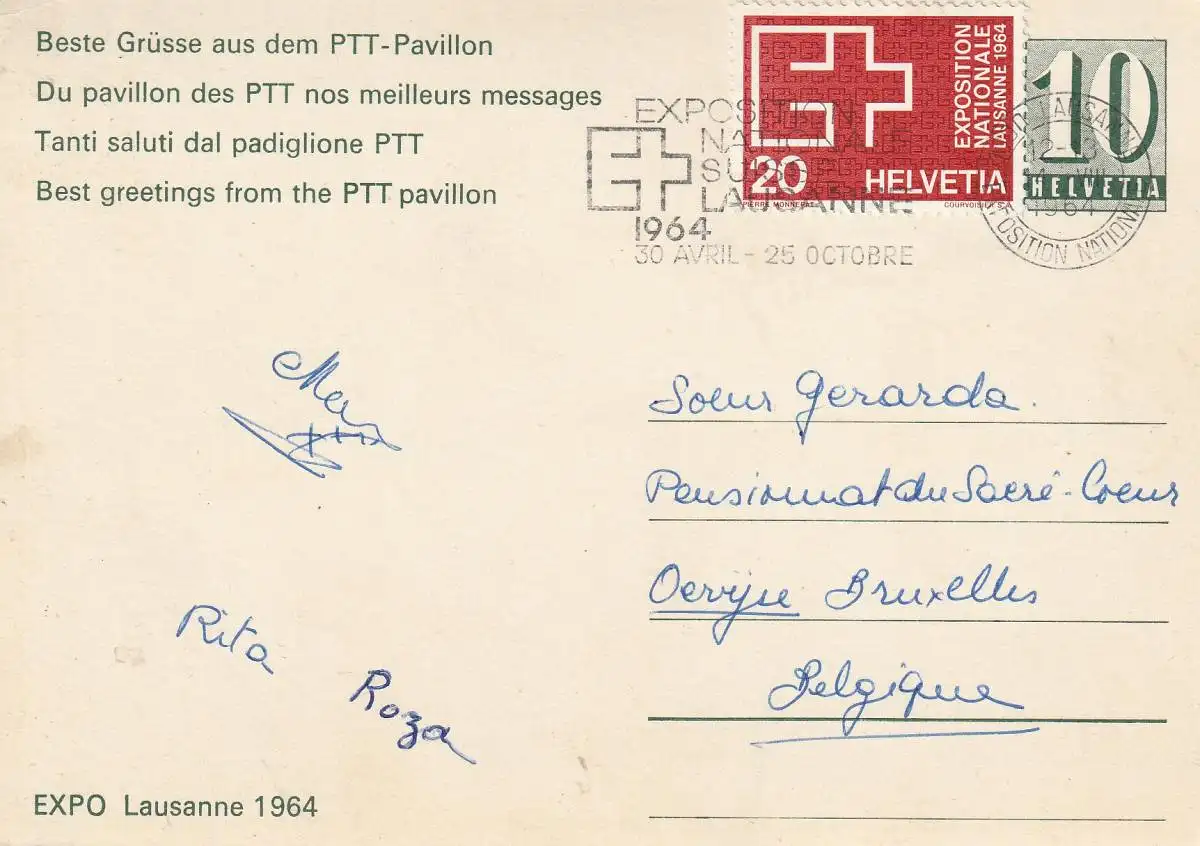 Beste Grüsse aus dem PTT-Pavillon
Du pavillon des PTT nos meilleurs messages
Tanti saluti dal padiglione PTT
Best greetings from the PTT pavillon
EXPOSITION
NATIONALE
LAUSANNE 1964
20 HELVETIA
PIERRE MONNERAT
COURVOISIER S.A.
10
HELVETIA
EXPOSITION
NATIONALE
SUISSE
LAUSANNE
1964
30 AVRIL - 25 OCTOBRE
LAUSANNE
12-13
VIII
1964
EXPOSITION NATIONALE
Soeur Gerarda.
Pensionnat du Sacré-Coeur
Oevyse Bruxelles
Belgique
Rita
Roza
EXPO Lausanne 1964